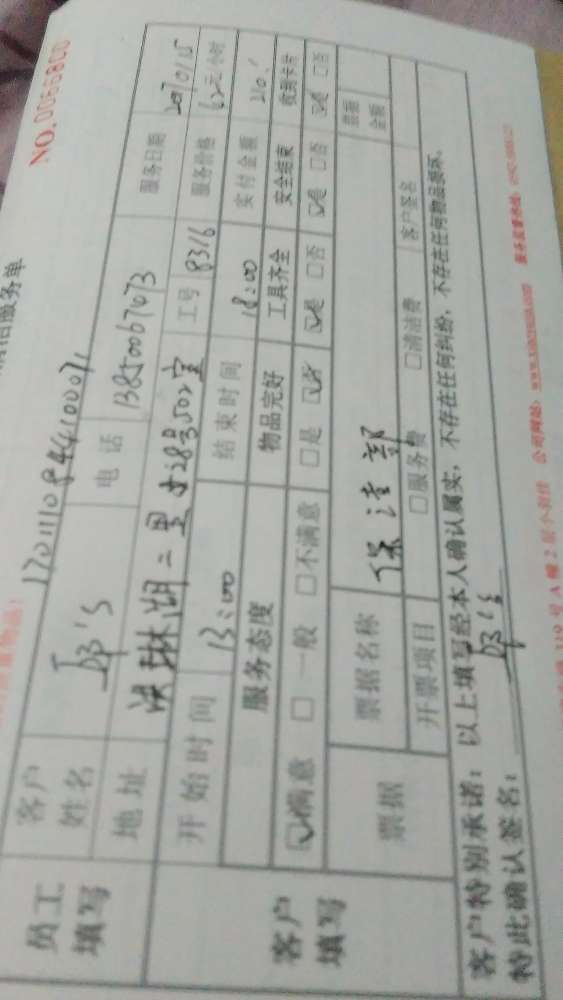 洁服务单
NO.0066800
17011108441000071
员工填写
客户姓名
电话
13850067473
服务日期
地址
洪琳湖二里
28号502室
工号
8316
服务价格
元/小时
客户填写
开始时间
13:00
结束时间
18:00
实付金额
210.
服务态度
物品完好
工具齐全
安全结束
收到卡片
☑满意 □一般 □不满意
□是 ☑否
☑是 □否
☑是 □否
☑是 □否
票据
票据名称
保洁部
票据金额
开票项目
□服务费 □清洁费
客户签名
客户特别承诺：以上填写经本人确认属实，不存在任何纠纷，不存在任何物品损坏，
特此确认签名：
公司网址：